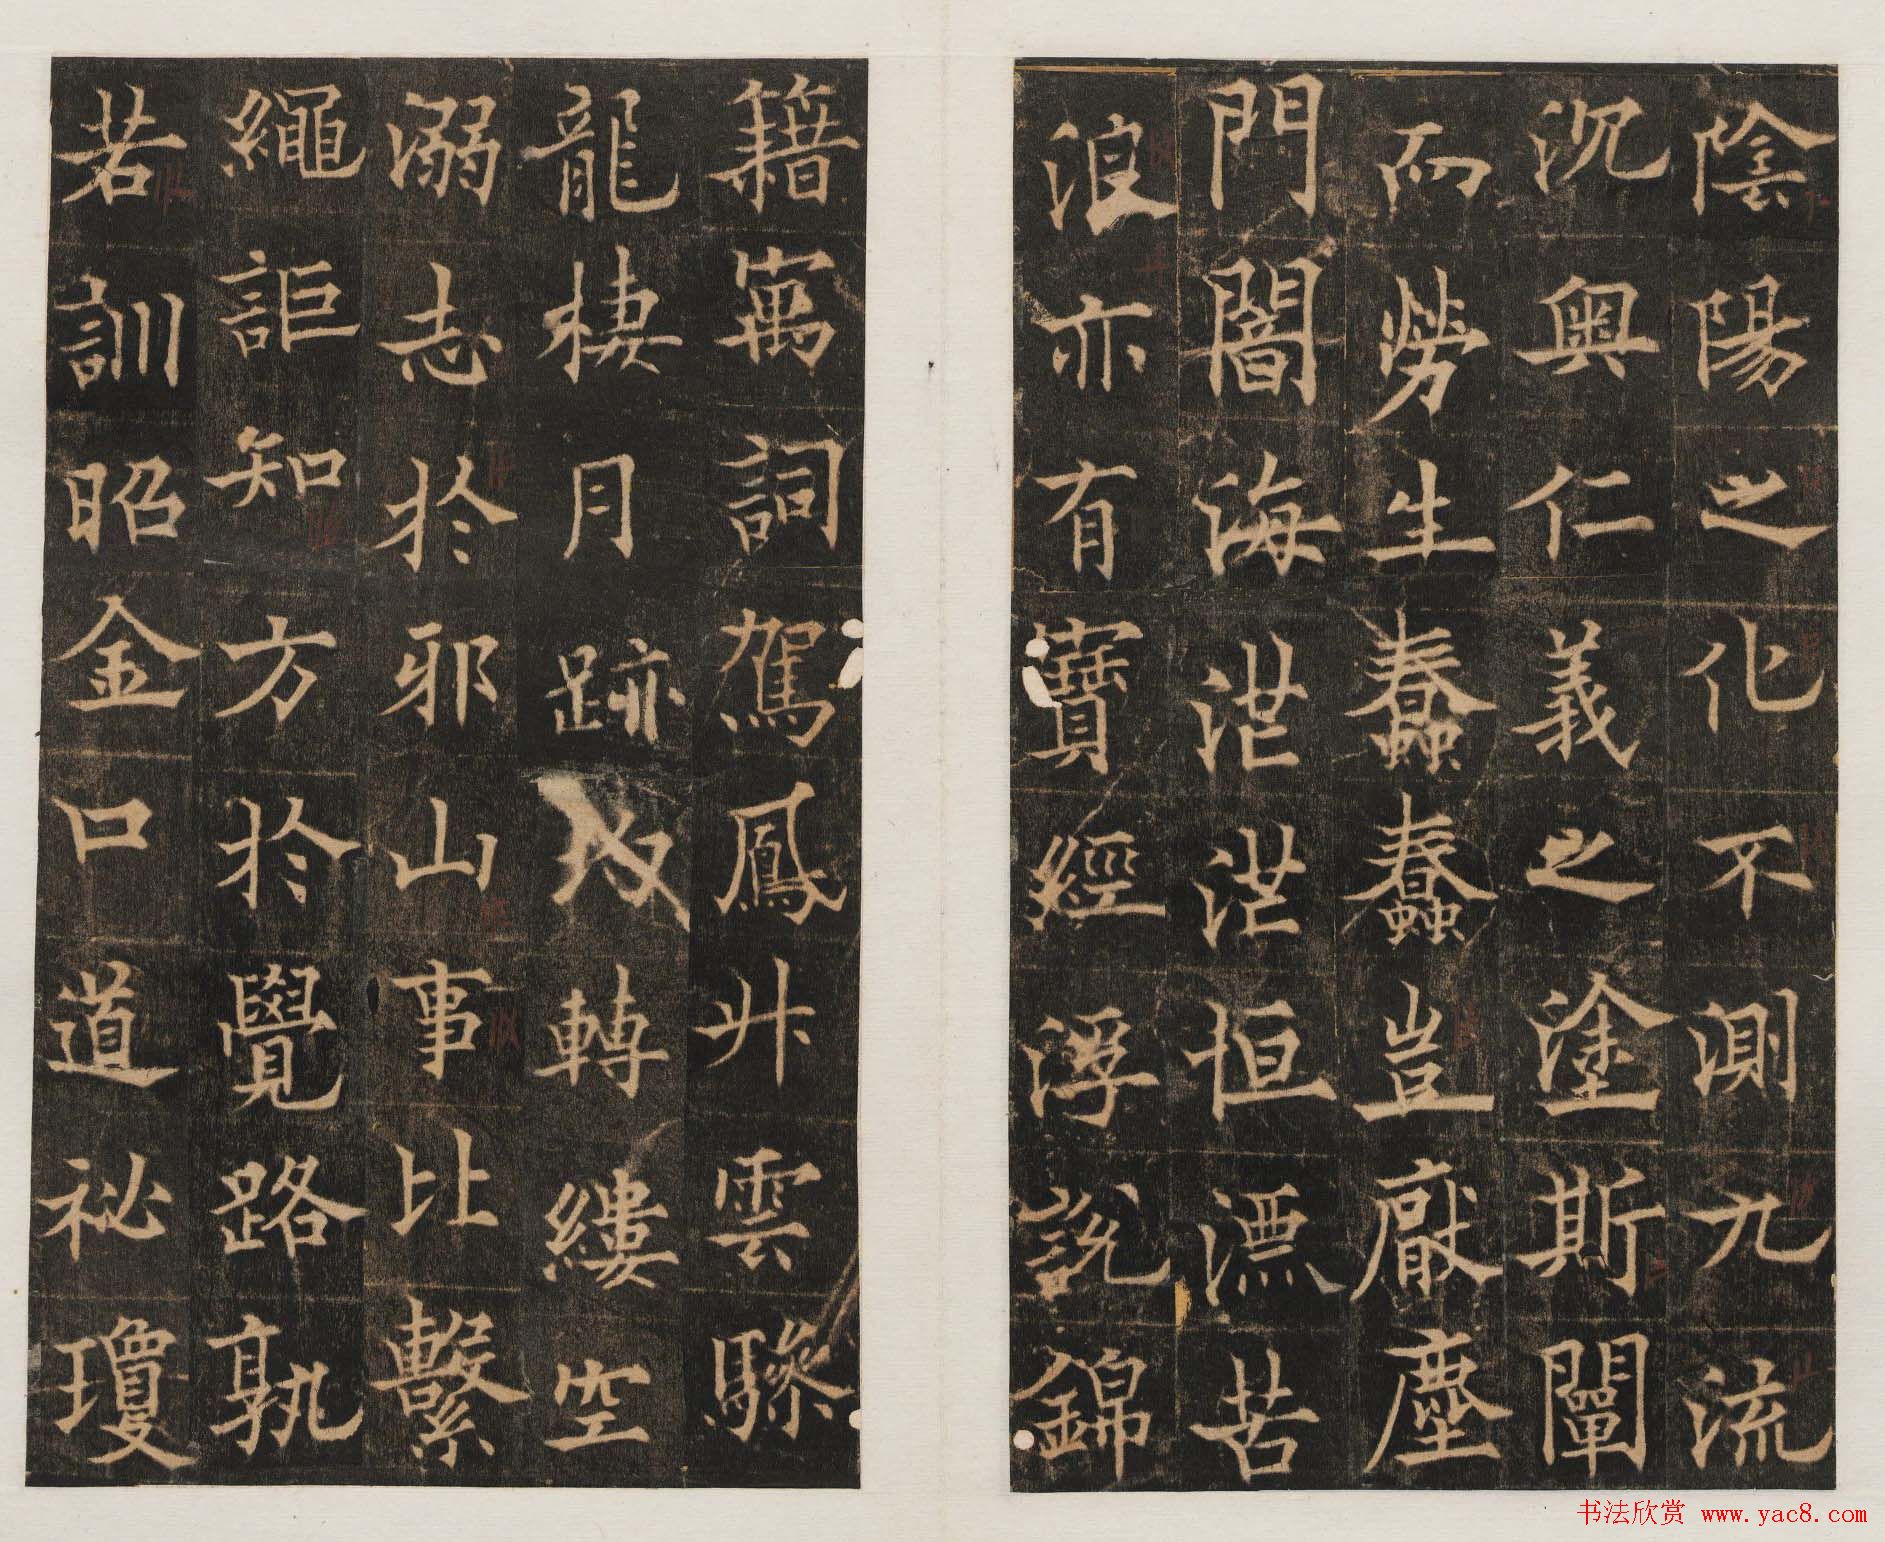 陰陽之化不測九流
沉奧仁義之塗斯闡
而勞生蠢蠢豈厭塵
門闇海茫茫恒漂苦
浪亦有寶經浮說錦
籍寓詞駕鳳升雲驂
龍棲月跡轉縷空
溺志於邪山事比繫
繩詎知方於覺路孰
若訓昭金口道祕瓊
书法欣赏 www.yac8.com